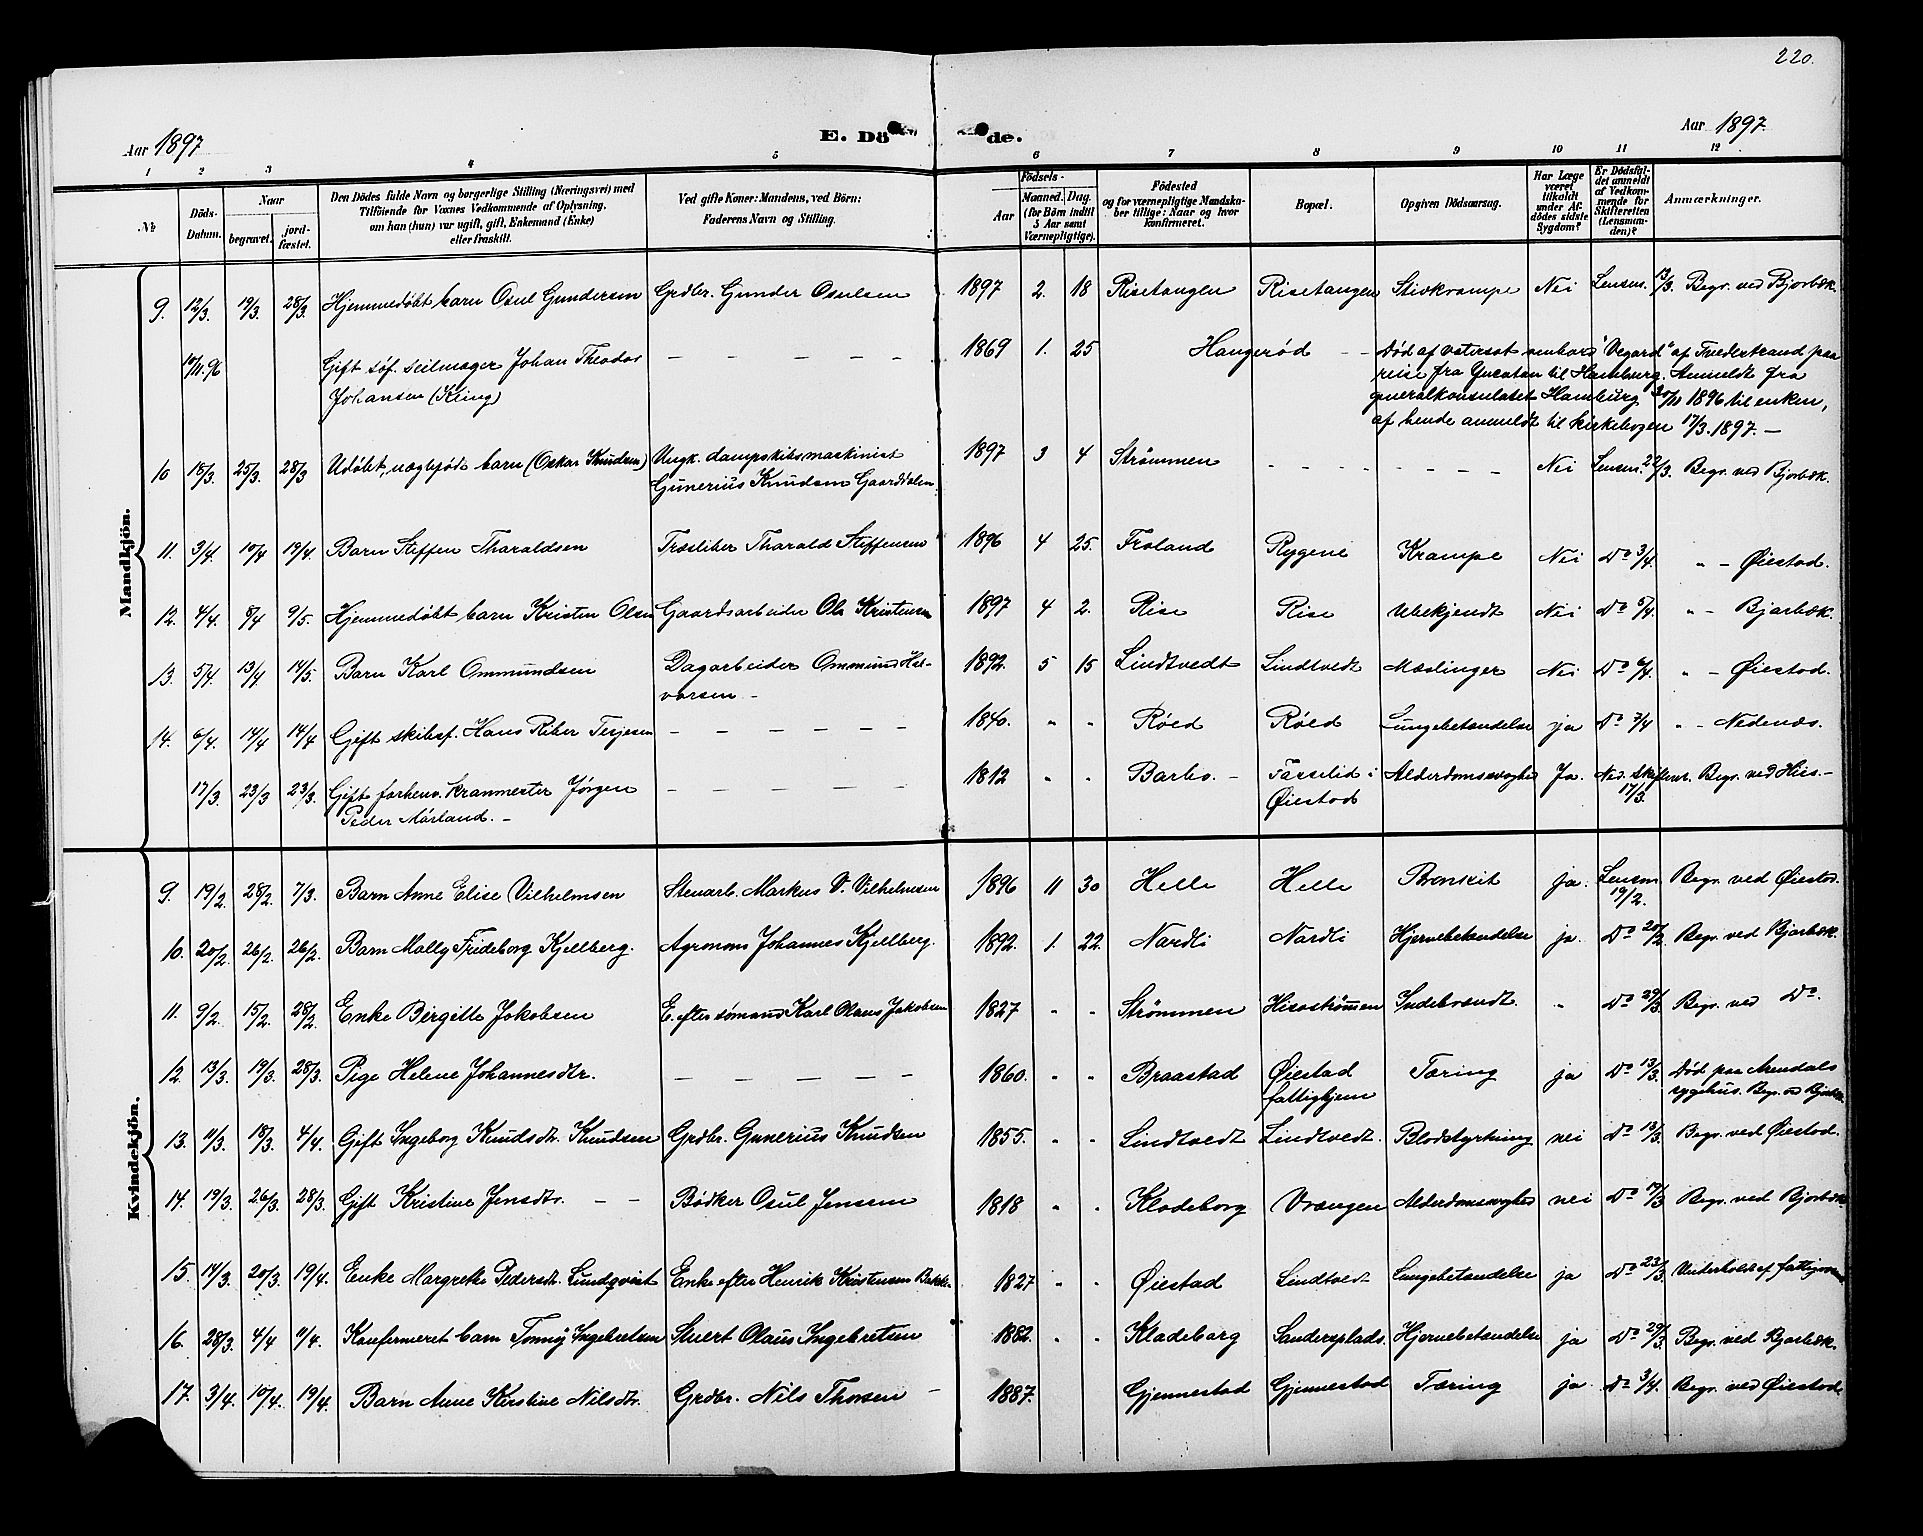 220.
Aar 1897
E. Dö de.
Aar 1897.
1 2 3 4 5 6 7 8 9 10 11 12
№
Döds-Datum.
Naar
begravet.
jord-fæstet.
Den Dödes fulde Navn og borgerlige Stilling (Næringsvei) med
Tilföiende for Voxnes Vedkommende af Oplysning,
om han (hun) var ugift, gift, Enkemand (Enke)
eller fraskilt.
Ved gifte Koner: Mandens, ved Börn:
Faderens Navn og Stilling.
Födsels-
Aar
Maaned. Dag.
(for Börn indtil
5 Aar samt
Værnepligtige).
Födested
og for værnepligtige Mandska-
ber tillige: Naar og hvor
konfirmeret.
Bopæl.
Opgiven Dödsaarsag.
Har Læge
været
tilkaldt
under Af-
dödes sidste
Sygdom?
Er Dödsfal-
det anmeldt
af Vedkom-
mende for
Skifteretten
(Lensman-
den)?
Anmærkninger.
Mandkjön.
9. 12/3. 19/3. 28/3. Hjemmedøbt barn Osul Gundersen Grdbr. Gunder Osulsen 1897 2. 18 Risetangen Risetangen Stivkrampe Nei Lensm. 13/3. Begr. ved Bjorbæk.
10/11.96 Gift søf. seilmager Johan Theodor – – – – – 1869 1. 25 Hangerød – – Død af vatersot ombord "Vegard" af Tvedestrand paa
Johansen (Kling) reise fra Yucatan til Hamburg. Anmeldt fra
generalkonsulatet Hamburg 20/11 1896 til enken,
af hende anmeldt til kirkebogen 17/3. 1897. –
10 18/3. 25/3. 28/3 Udøbt, nægbfødt barn (Oskar Knudsen) Ungk. dampskibsmaskinist 1897 3 4 Strømmen – – – – – – – – Nei Lensm. 22/3. Begr. ved Bjorbæk.
Gunerius Knudsen Gaarddalen.
11. 3/4. 10/4 19/4. Barn Steffen Tharaldsen Træsliber Tharald Steffensen 1896 4 25. Froland Rygene Krampe Nei Do 3/4. " – Øiestad.
12. 4/4. 8/4 9/5. Hjemmedøbt barn Kristen Olsen Gaardsarbeider Ole Kristensen 1897 4 2. Rise Rise Ubekjendt Nei Do 5/4. " – Bjarbæk.
13. 5/4. 13/4 14/5. Barn Karl Ommundsen Dagarbeider Ommund Hal-
varsen – 1892. 5 15 Lindtvedt Lindtvedt Mæslinger Nei Do 6/4. " – Øiestad.
14. 6/4. 14/4 14/4 Gift skibsf. Hans Riber Terjesen – – – – – – 1840. " " Røed Røed Lungebetændelse ja Do 7/4 " – Nedenæs.
17/3. 23/3 23/3. Gift forhenv. kranmester Jørgen – – – – – 1812 " " Barbo. – i Alderdomssvaghed Ja. Ned. skifteret. Begr. ved Hiis. –
Peder Mørland. – Øiestad 17/3.
Kvindekjön.
9. 19/2 28/2. 7/3. Barn Anne Elise Vilhelmsen Stenarb. Markus V. Vilhelmsen 1896 11 30 Helle Helle Bronkit ja. Lensm. 19/2. Begr. ved Øiestad.
10. 20/2 26/2. 26/2. Barn Mally Frideborg Kjellberg. Agronom Johannes Kjellberg. 1892. 1. 22. Nardli Nardli Hjernebetændelse ja. Do 20/2. Begr. ved Bjarbæk.
11. 9/2. 15/2. 28/2. Enke Bergitte Jakobsen E. efter sømand Karl Olaus Jakobsen 1827 " " Strømmen Hisøstrømmen Indebrændt. " Do 29/3. Begr. ved Do.
12. 13/3. 19/3. 28/3. Pige Helene Johannesdtr. – – – – – 1860. " " Braastad Øiestad Tæring ja Do 13/3. Død paa Arendals
fattighjem sygehus. Begr. v Bjarbæk.
13. 11/3. 18/3. 4/4. Gift Ingeborg Knudsdtr. Knudsen Grdbr. Gunerius Knudsen 1855. " " Lindtvedt Lindtvedt. Blodstyrtning nei Do 13/3. Begr. ved Øiestad.
14. 19/3. 26/3. 28/3. Gift Kristine Jensdtr. – – Bødker Osul Jensen 1818 " " Kladeborg Vrængen Alderdomssvaghed nei Do 19/3 Begr. ved Bjorbæk.
15. 14/3. 20/3. 19/4. Enke Margrethe Pedersdtr. Lundqvist Enke efter Henrik Kristensen Bakke. 1827 " " Øiestad Lindtvedt Lungebetændelse ja Do 23/3. Underholdt af fattigvæsenet
16. 28/3. 4/4 11/4. Konfermeret barn Tomny Ingebretsen Stuert Olaus Ingebretsen 1882. " " Kladeborg Sandersplads. Hjernebetændelse ja Do 29/3. Begr. ved Bjarbæk.
17. 3/4. 10/4. 19/4. Barn Anne Kirstine Nilsdtr. Grdbr. Nils Thorsen – 1887. Gjennestad Gjennestad Tæring ja Do 3/4. Begr. ved Øiestad.